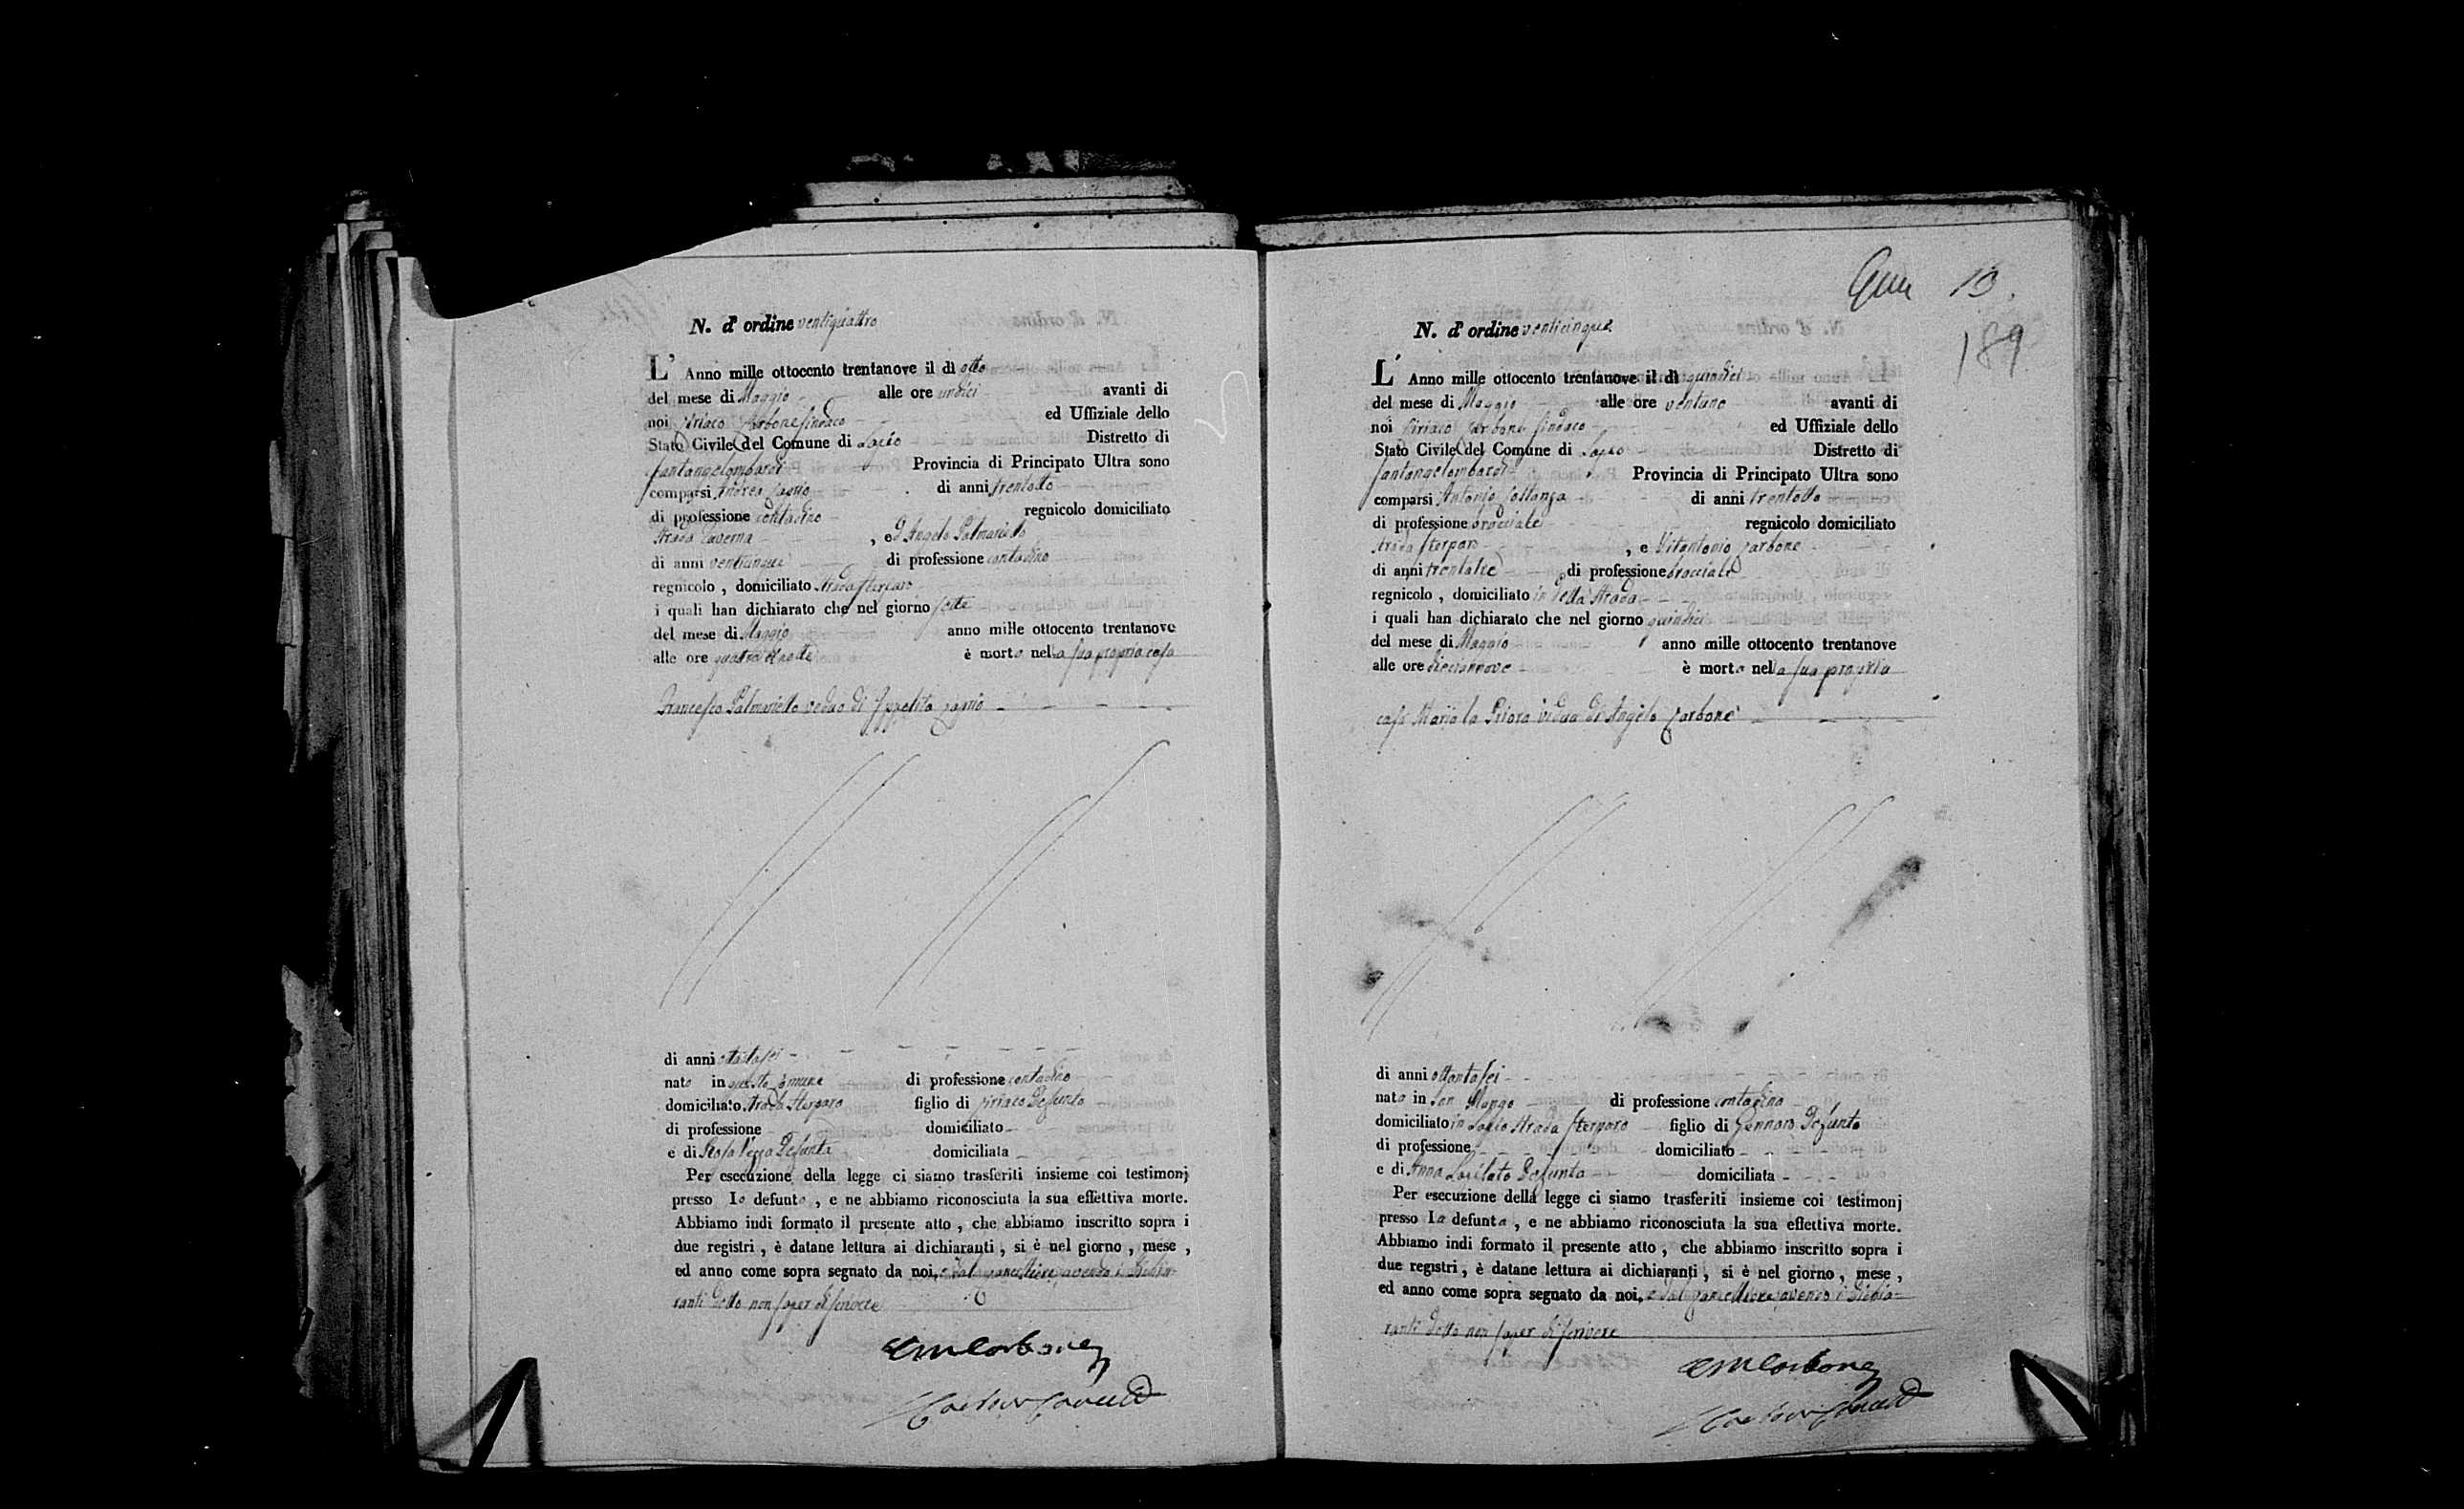 N. d' ordine ventiquattro
L' Anno mille ottocento trentanove il dì otto
del mese di Maggio alle ore undici avanti di
noi Ciriaco Carbone Sindaco ed Uffiziale dello
Stato Civile del Comune di Lapio Distretto di
Santangelombardi Provincia di Principato Ultra sono
comparsi Andrea di anni trentotto
di professione contadino regnicolo domiciliato
Strada Taverna , e D'Angelo Palmariello
di anni venticinque di professione contadino
regnicolo , domiciliato Strada Sterparo
i quali han dichiarato che nel giorno sette
del mese di Maggio anno mille ottocento trentanove
alle ore quattro è morto nella sua propria casa
Francesco Palmariello vedovo di Ippolita
di anni ottantasei
nato in questo Comune di professione contadino
domiciliato Strada Sterparo figlio di Ciriaco Defunto
di professione domiciliato
e di Rosa Defunta domiciliata
Per esecuzione della legge ci siamo trasferiti insieme coi testimonj
presso lo defunto , e ne abbiamo riconosciuta la sua effettiva morte.
Abbiamo indi formato il presente atto , che abbiamo inscritto sopra i
due registri , è datane lettura ai dichiaranti , si è nel giorno , mese ,
ed anno come sopra segnato da noi, e dal Cancelliere avendo i dichia-
ranti detto non saper di scrivere
Carbone
10.
189
N. d' ordine venticinque
L' Anno mille ottocento trentanove il dì quindici
del mese di Maggio alle ore ventuno avanti di
noi Ciriaco Carbone Sindaco ed Uffiziale dello
Stato Civile del Comune di Lapio Distretto di
Santangelombardi Provincia di Principato Ultra sono
comparsi Antonio Costanza di anni trentotto
di professione bracciale regnicolo domiciliato
Strada Sterparo , e Vitantonio Carbone
di anni trentatre di professione bracciale
regnicolo , domiciliato in detta Strada
i quali han dichiarato che nel giorno quindici
del mese di Maggio anno mille ottocento trentanove
alle ore diecinnove è morta nella sua propria
casa Maria la Priora vedua di Angelo Carbone
di anni ottantasei
nata in San Mango di professione contadina
domiciliato in Lapio Strada Sterparo figlio di Gennaro Defunto
di professione domiciliato
e di Anna Defunta domiciliata
Per esecuzione della legge ci siamo trasferiti insieme coi testimonj
presso la defunta , e ne abbiamo riconosciuta la sua effettiva morte.
Abbiamo indi formato il presente atto , che abbiamo inscritto sopra i
due registri , è datane lettura ai dichiaranti , si è nel giorno , mese ,
ed anno come sopra segnato da noi, e dal Cancelliere avendo i dichia-
ranti detto non saper di scrivere
Carbone